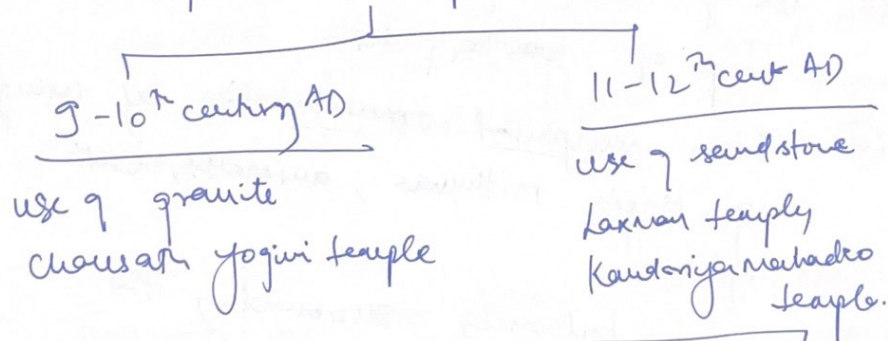 9-10th century AD
use of granite
Chousath yogini temple
11-12th cent AD
use of sandstone
Laxman temple
Kandariya Mahadeo
temple.